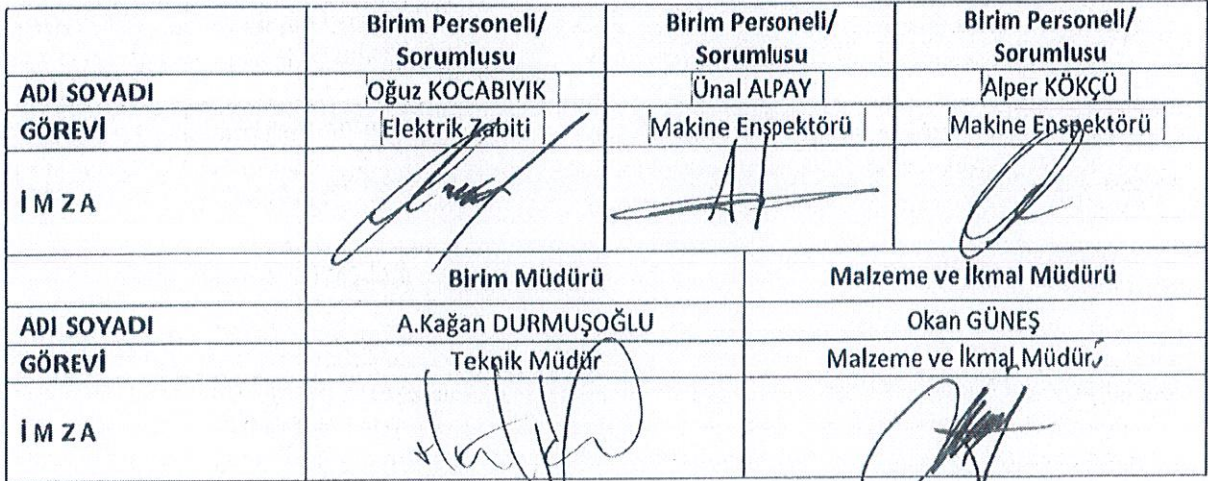 Birim Personeli/ Birim Personeli/ Birim Personeli/
Sorumlusu Sorumlusu Sorumlusu
ADI SOYADI Oğuz KOCABIYIK Ünal ALPAY Alper KÖKÇÜ
GÖREVİ Elektrik Zabiti Makine Enspektörü Makine Enspektörü
İMZA
Birim Müdürü Malzeme ve İkmal Müdürü
ADI SOYADI A.Kağan DURMUŞOĞLU Okan GÜNEŞ
GÖREVİ Teknik Müdür Malzeme ve İkmal Müdürü
İMZA